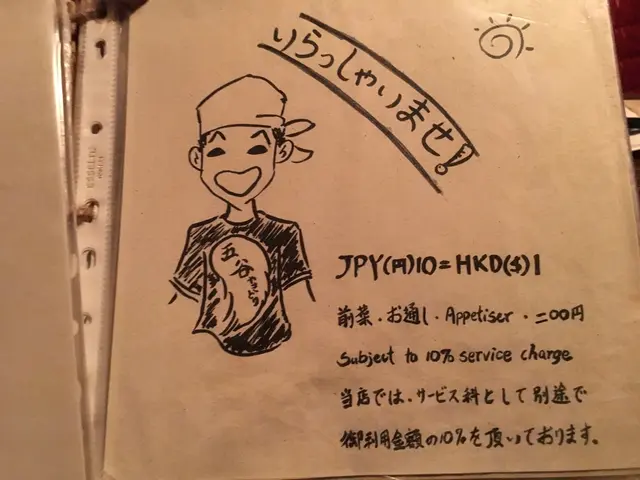 いらっしゃいませ!
五谷
JPY(円)10=HKD($)1
前菜・お通し・Appetiser・二〇〇円
Subject to 10% service charge
当店では、サービス料として別途で
御利用金額の10%を頂いております。